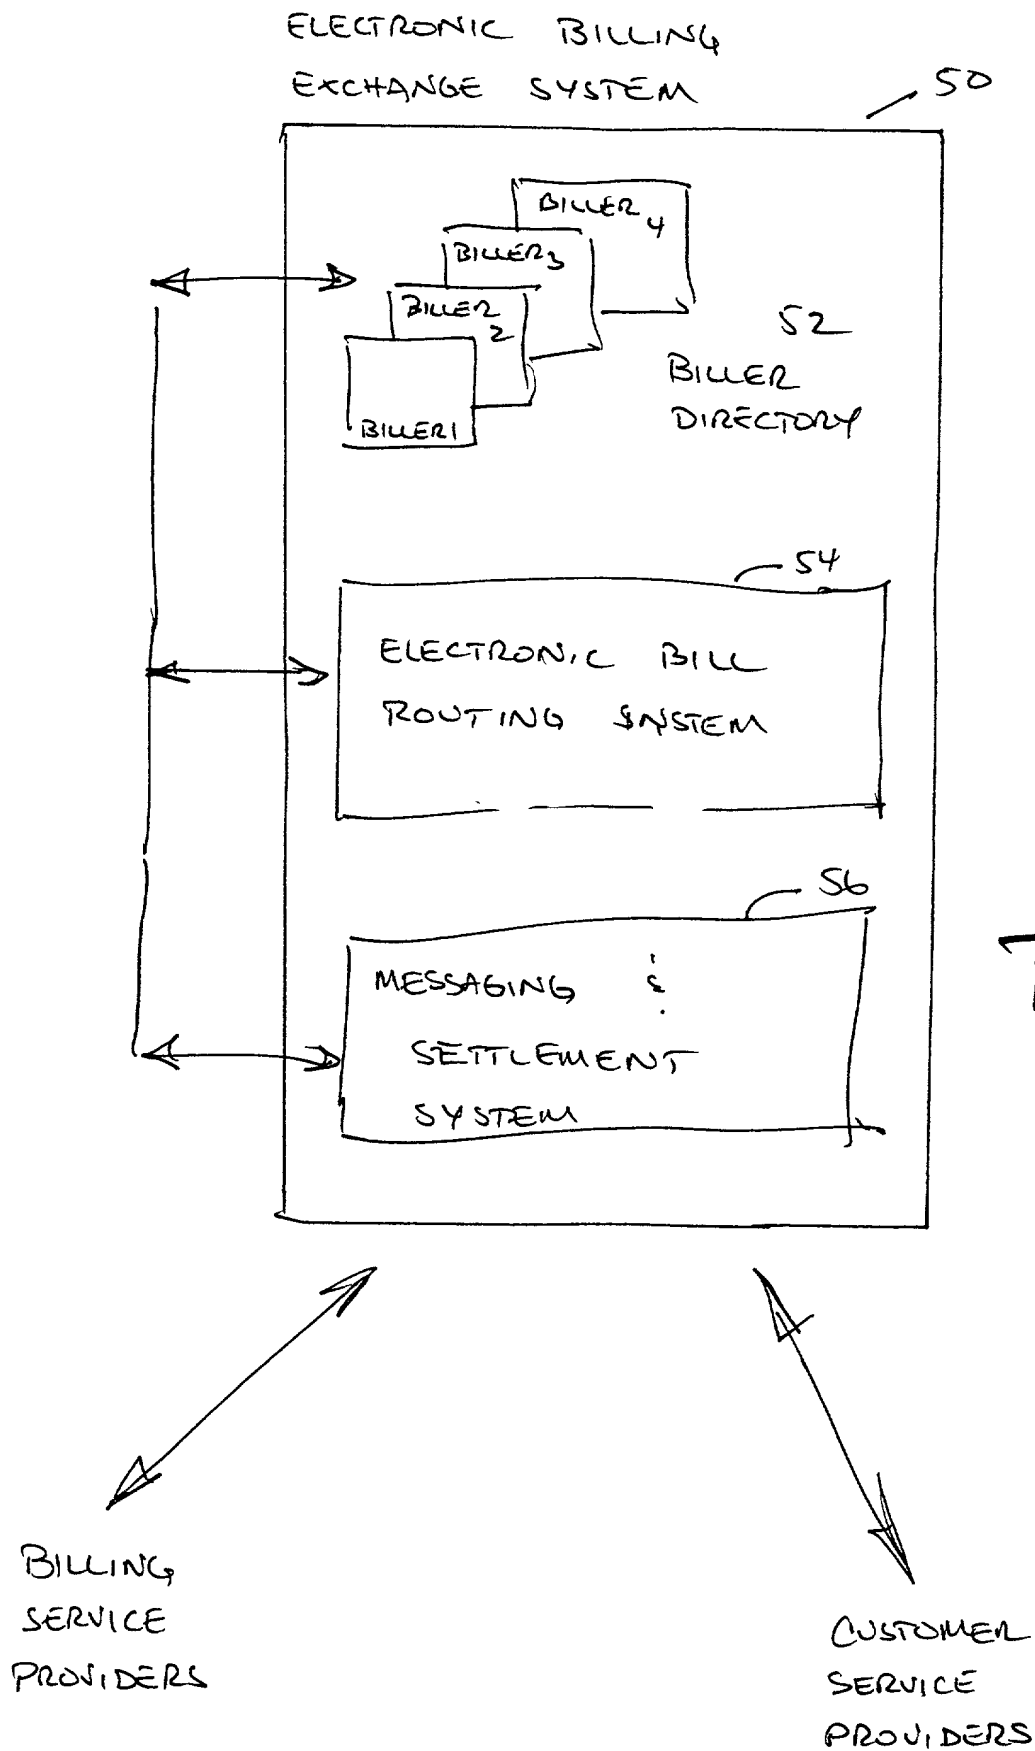 ELECTRONIC BILLING
EXCHANGE SYSTEM
50
BILLER
4
BILLER3
BILLER
2
BILLER1
52
BILLER
DIRECTORY
54
ELECTRONIC BILL
ROUTING SYSTEM
56
MESSAGING &
SETTLEMENT
SYSTEM
BILLING
SERVICE
PROVIDERS
CUSTOMER
SERVICE
PROVIDERS